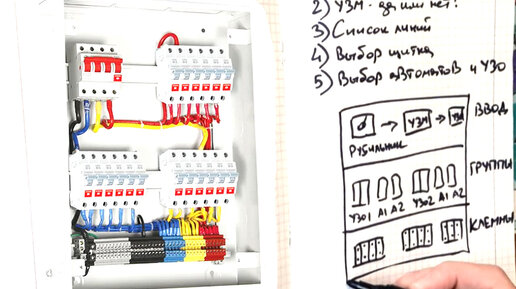 2) УЗМ - да или нет?
3) Список линий
4) Выбор щитка
5) Выбор автоматов и УЗО
ВВОД
УЗМ
Рубильник
ГРУППЫ
УЗО1 А1 А2 УЗО2 А1 А2
КЛЕММЫ